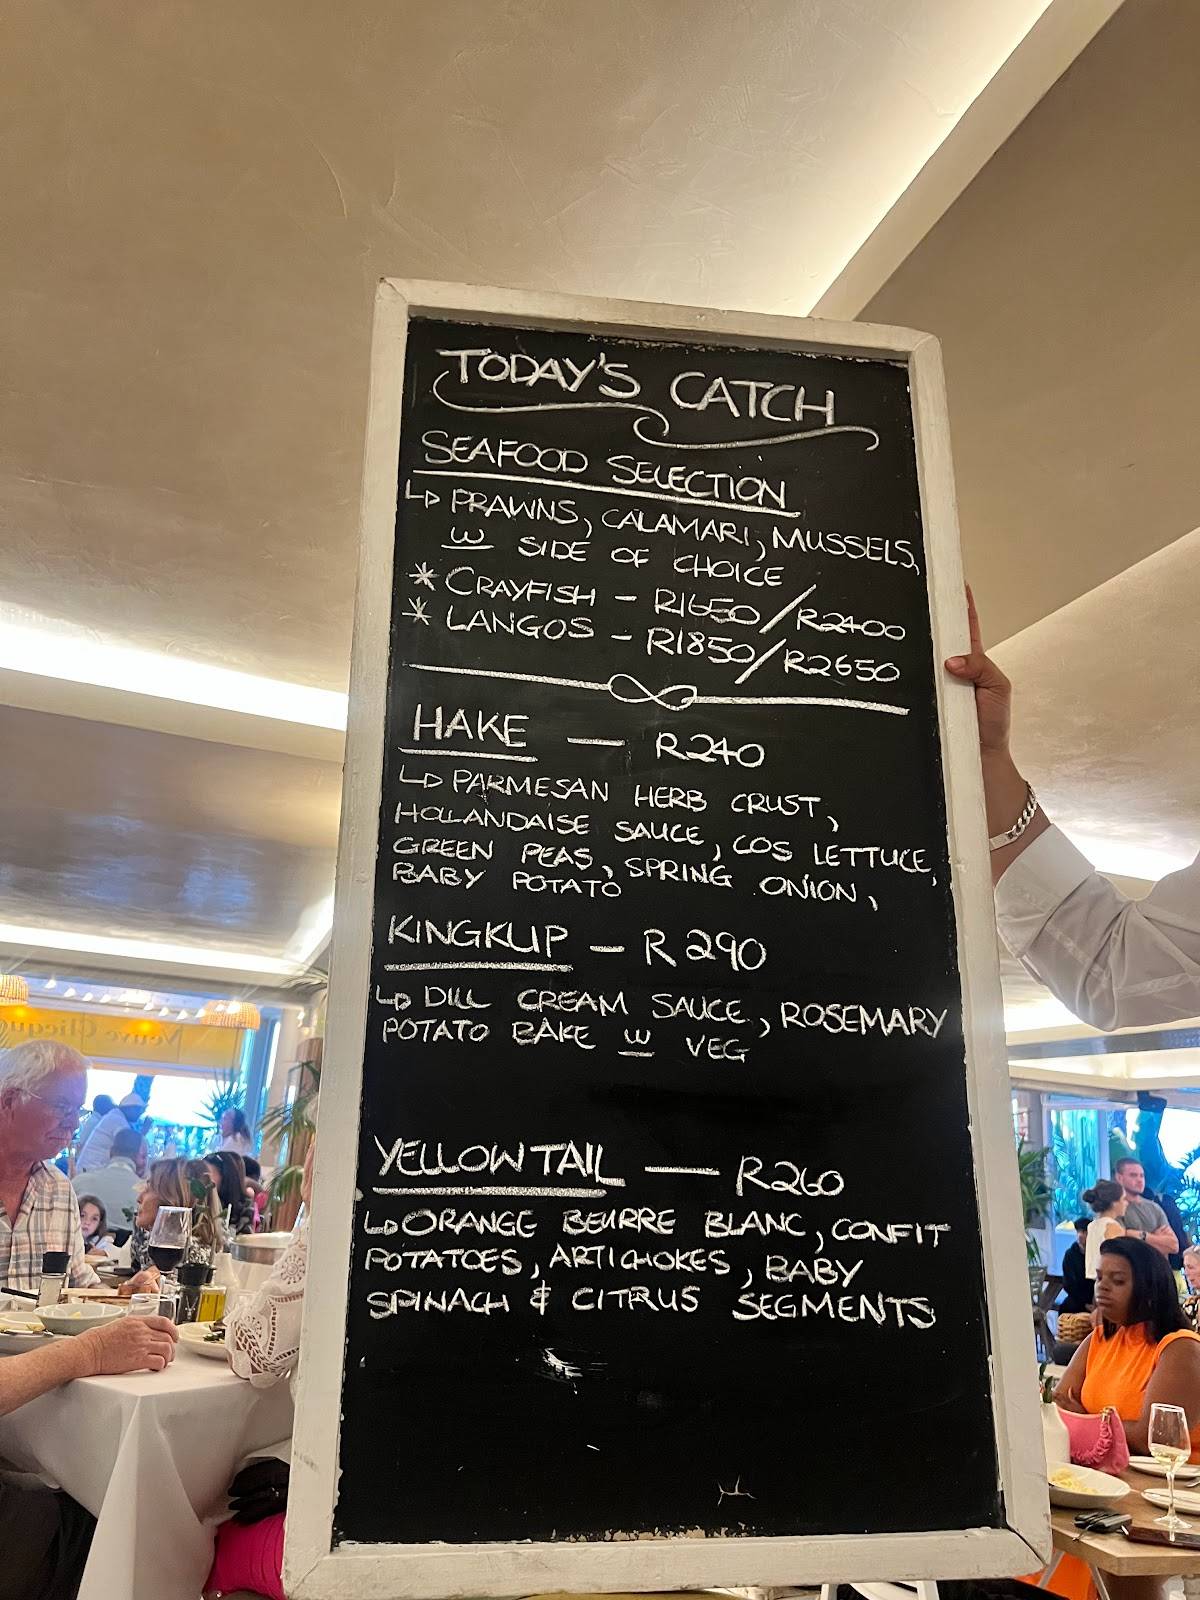 TODAY'S CATCH
SEAFOOD SELECTION
↳ PRAWNS, CALAMARI, MUSSELS,
w SIDE OF CHOICE
* CRAYFISH - R1650/R2400
* LANGOS - R1850/R2650
HAKE — R240
↳ PARMESAN HERB CRUST,
HOLLANDAISE SAUCE, COS LETTUCE,
GREEN PEAS, SPRING ONION,
BABY POTATO
KINGKLIP — R290
↳ DILL CREAM SAUCE, ROSEMARY
POTATO BAKE w VEG
YELLOWTAIL — R260
↳ ORANGE BEURRE BLANC, CONFIT
POTATOES, ARTICHOKES, BABY
SPINACH & CITRUS SEGMENTS
Veuve Clicquot